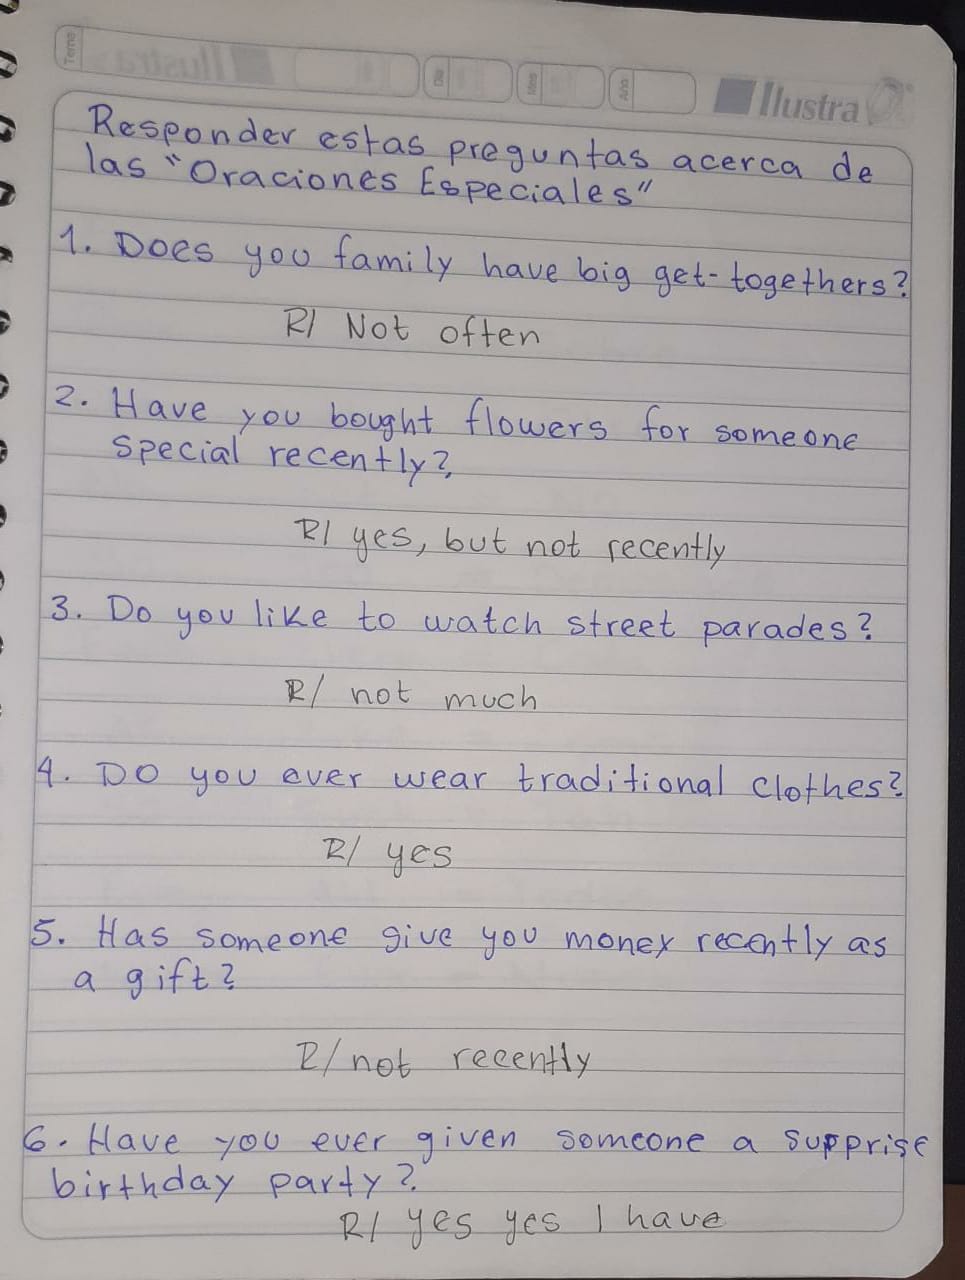 Tema
Día
Mes
Año
Illustra
Responder estas preguntas acerca de
las "Oraciones Especiales"
1. Does you family have big get-togethers?
R/ Not often
2. Have you bought flowers for someone
special recently?
R/ yes, but not recently
3. Do you like to watch street parades?
R/ not much
4. Do you ever wear traditional clothes?
R/ yes
5. Has someone give you money recently as
a gift?
R/ not recently
6. Have you ever given someone a supprise
birthday party?
R/ yes yes I have